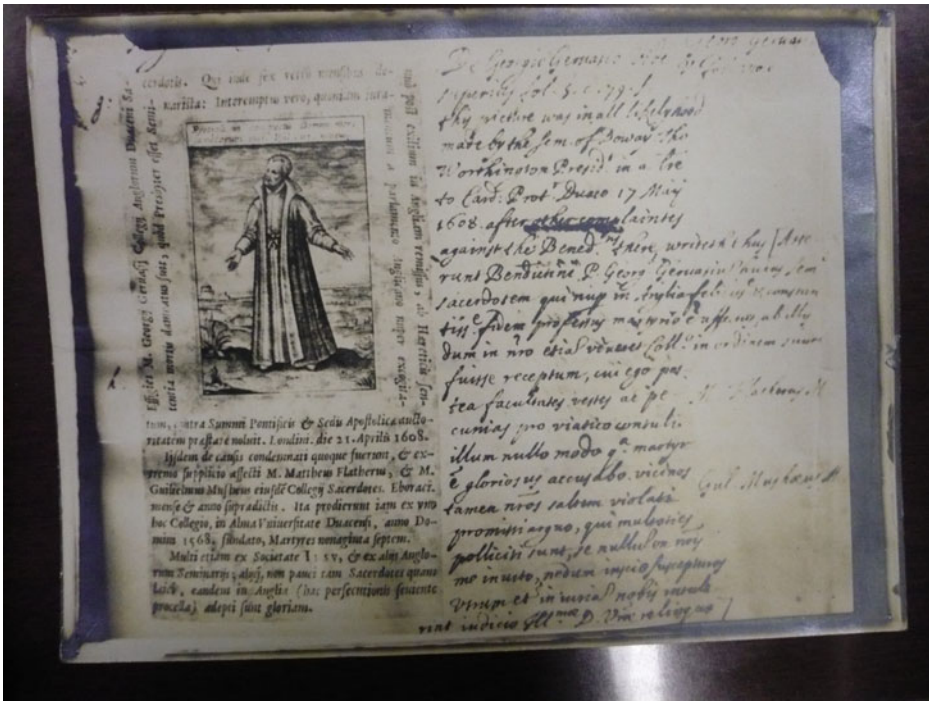 cerdotis. Qui inde sex vertis mensibus de-
narista: Interemptus vero, quoniam iura-
Effigies M. Georgii Gervasii Collegij Anglorum Duaceni Sa-
tentia mortis damnatus fuit, quod Presbyter esset Semi-
und post exilium in Angliam remissus, ab Hæreticis sen-
mentum a parlamento Anglicano nuper excogita-
tum, contra Summi Pontificis & Sedis Apostolicæ aucto-
ritatem præstare noluit. Londini. die 21. Aprilis 1608.
Iisdem de causis condemnati quoque fuerunt, & ex-
tremo supplicio affecti M. Mattheus Flatherus, & M.
Guilielmus Musheus eiusdē Collegij Sacerdotes. Eboraci.
mense & anno supradictis. Ita prodierunt iam ex vno
hoc Collegio, in Alma Vniuersitate Duacensi, anno Do-
mini 1568. fundato, Martyres nonaginta septem.
Multi etiam ex Societate I : sv, & ex alijs Anglo-
rum Seminarijs; alijsq, non pauci tam Sacerdotes quam
laici, eandem in Anglia (hac persecutionis seuiente
procella) adepti sunt gloriam.
De Georgio Gervasio
Superius fol. 5. c. 79.
Thy picture was in all likelyhood
made by the sem. of Doway. Tho
Worthington Presidt. in a Lre
to Card: Prot. 17 May
1608. after other complaintes
against the Bened. there, writeth thus [Asse
runt P. Georg. Gervasiu
sacerdotem qui nup in Anglia
tiss. fidem professus martyrio ē
dum in nro etiā viveret Coll. in ordinem suum
fuisse receptum, cui ego pos
tea facultates vestes ac pe
cunias pro viatico contuli.
illum nullo modo qa. martyr
ē gloriosus accusabo. vicinos
tamen nros saltem violati
promissi arguo, qui multoties
polliciti sunt, se nullum
me invito, nedum inscio suscepturos
utrum et in nobis
runt iudicio Illmae D. Vrae relinquo ]
Flatherus M
Gul. Mushæus M